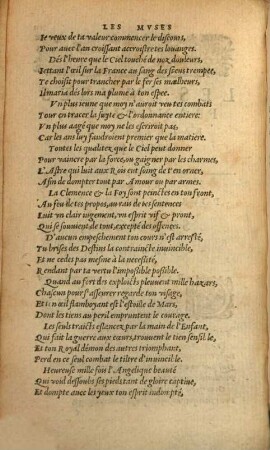 LES MVSES
Ie veux de ta valeur commencer le discours,
Pour auec l'an croissant accroistre tes louanges.
Dés l'heure que le Ciel touché de noz douleurs,
Iettant l'œil sur la France au sang des siens trempée,
Te choisit pour trancher par le fer ses malheurs,
Il maria dés lors ma plume à ton espee.
Vn plus ieune que moy n'auroit veu tes combats
Pour en tracer la suyte & l'ordonnance entiere:
Vn plus aagé que moy ne les escriroit pas,
Car les ans luy faudroient premier que la matiere.
Toutes les qualitez que le Ciel peut donner
Pour vaincre par la force, ou gaigner par les charmes,
L'Astre qui luit aux Rois ent sang de t'en orner,
Afin de dompter tout par Amour ou par armes.
La Clemence & la Foy sont peinctes en ton front,
Au feu de tes propos, au rais de tes sentences
Luit vn clair iugement, vn esprit vif & pront,
Qui se souuient de tout, excepté des offences.
D'aucun empeschement ton cours n'est arresté,
Tu brises des Destins la contraincte inuincible,
Et ne cedes pas mesme à la necesité,
Rendant par ta vertu l'impossible possible.
Quand au fort des exploicts pleuuent mille hazars,
Chascun pour s'asseurer regarde ton visage,
Et ton œil flamboyant est l'estoille de Mars,
Dont les tiens au peril empruntent le courage.
Les seuls traicts eslancez par la main de l'Enfant,
Qui fait la guerre aux cœurs, trouuent le tien sensible,
Et ton Royal démon des autres triomphant,
Perd en ce seul combat le tiltre d'inuincible.
Heureuse mille fois l'Angelique beauté
Qui void dessoubs ses pieds tant de gloire captiue,
Et dompte auec les yeux ton esprit indompté,